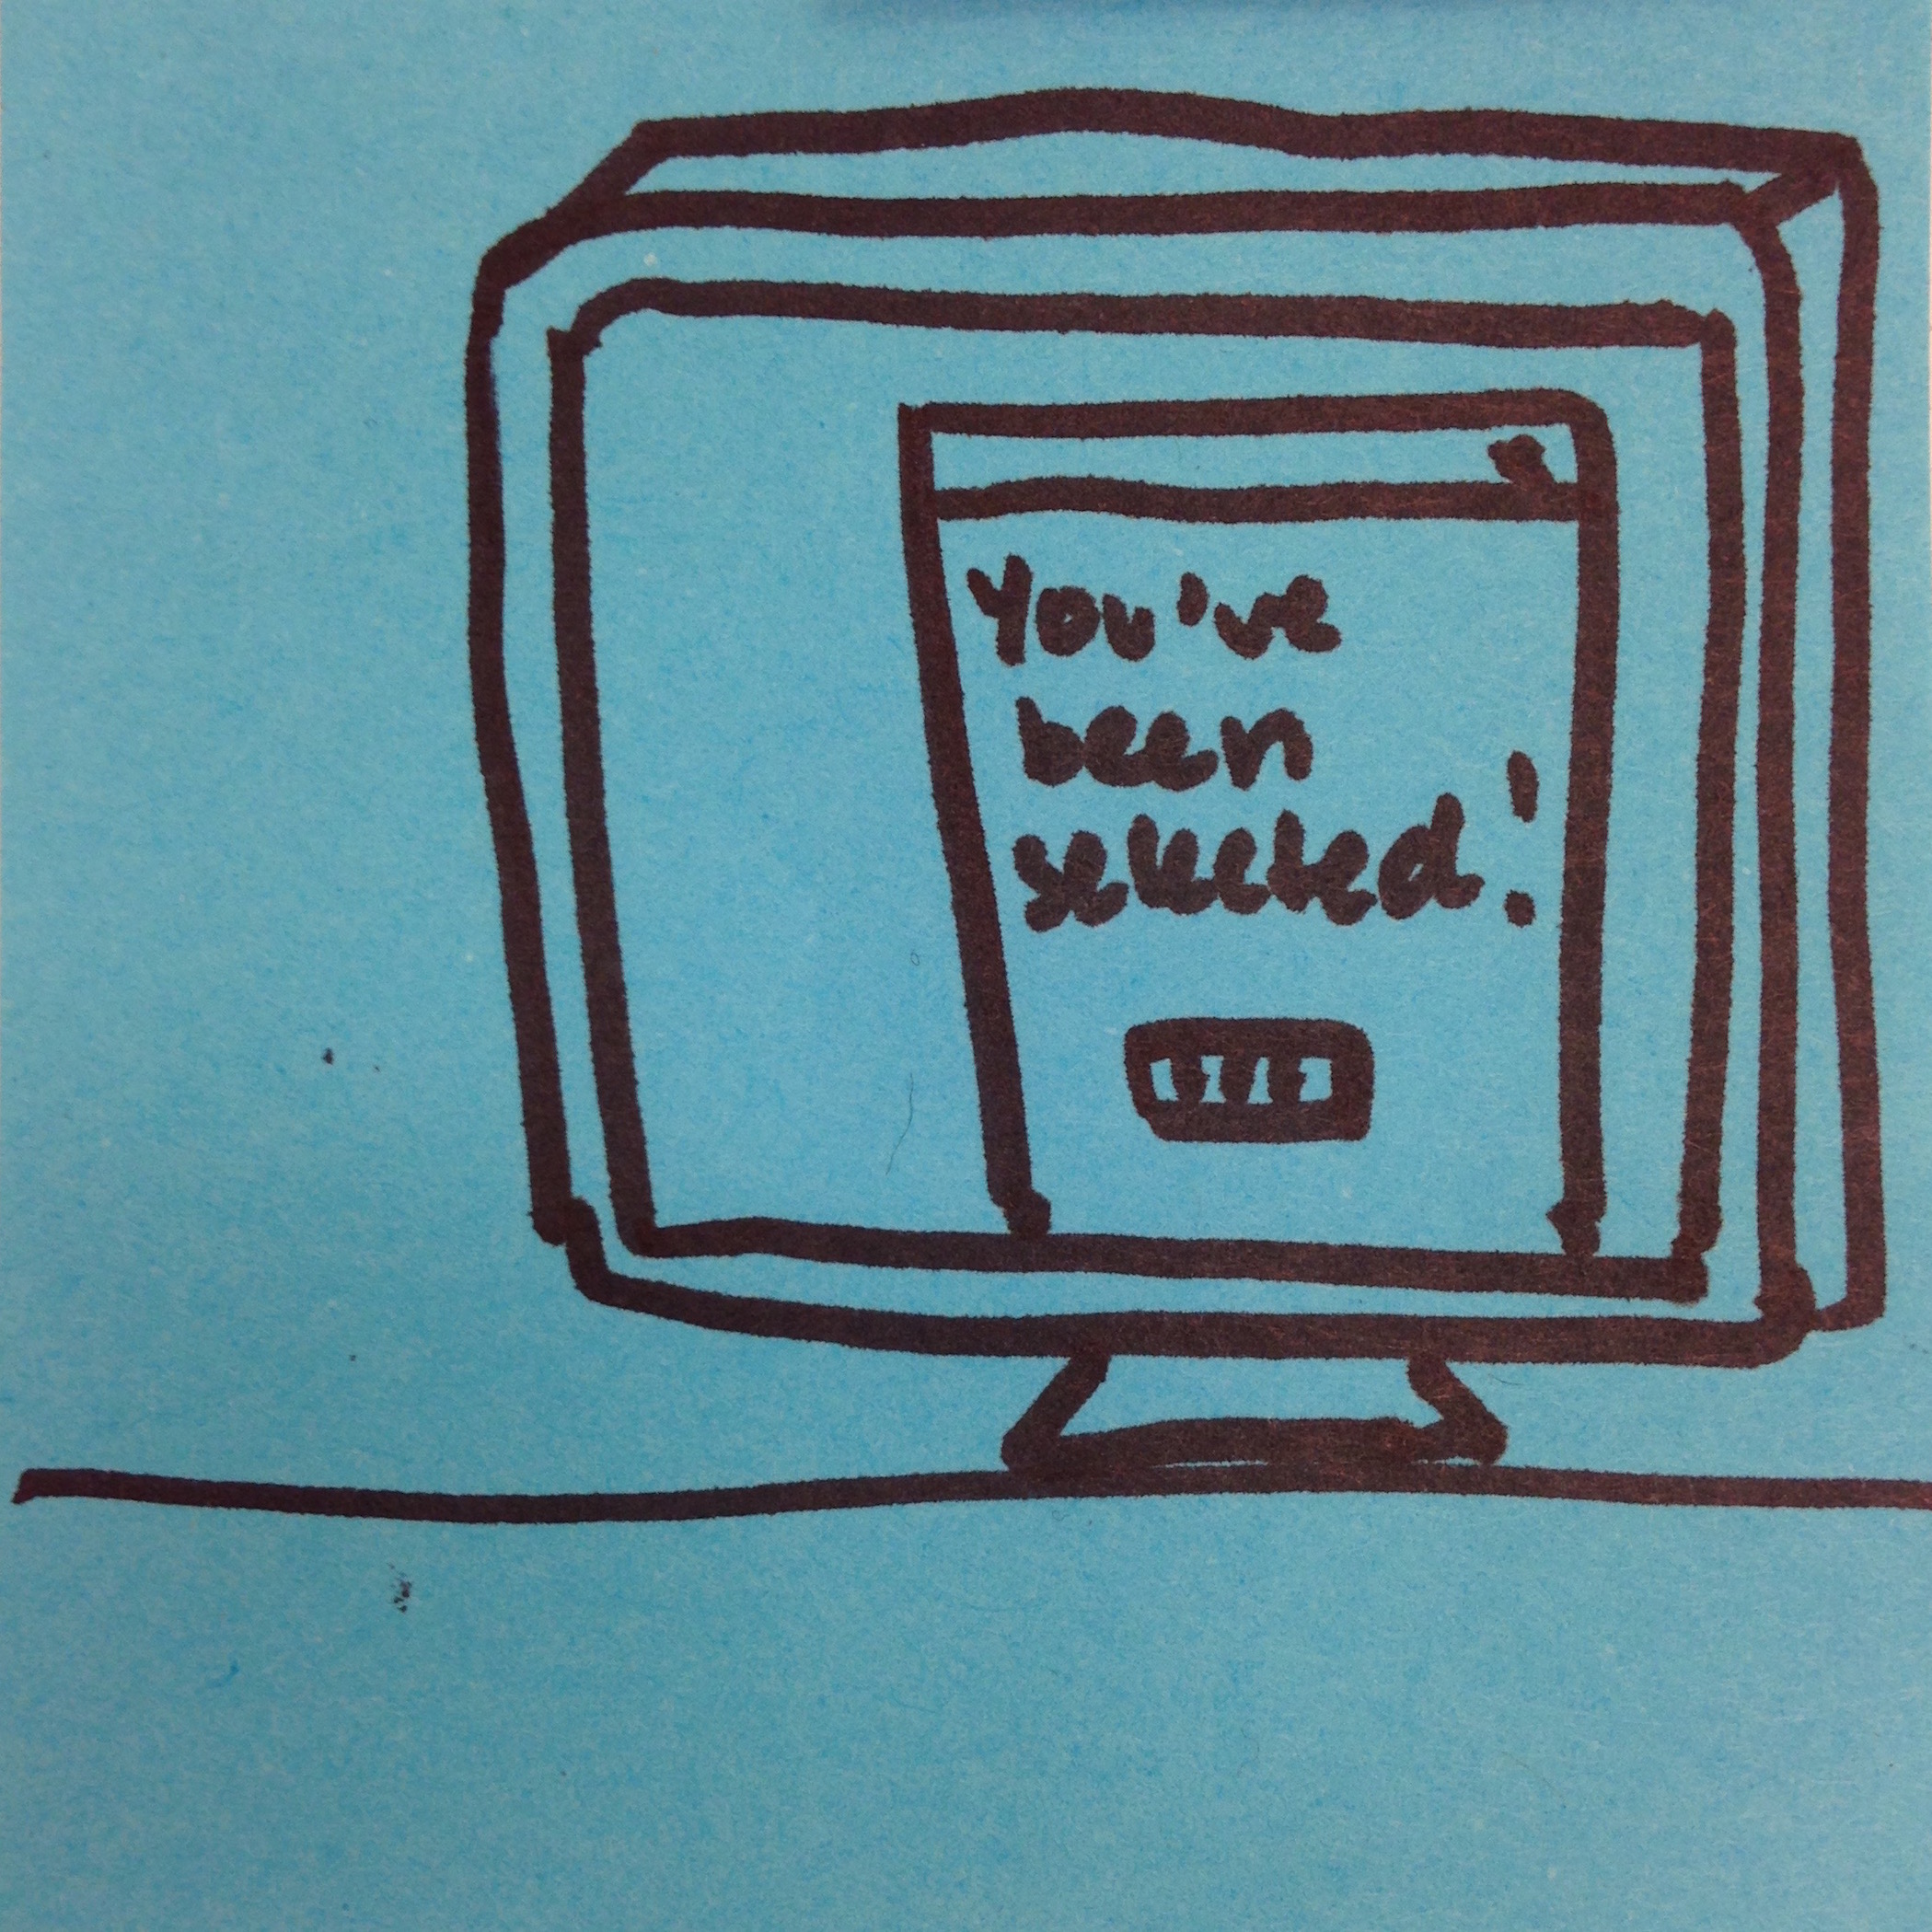 You've
been
selected!